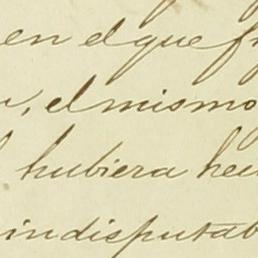 en el que
el mismo
hubiera
indisputab